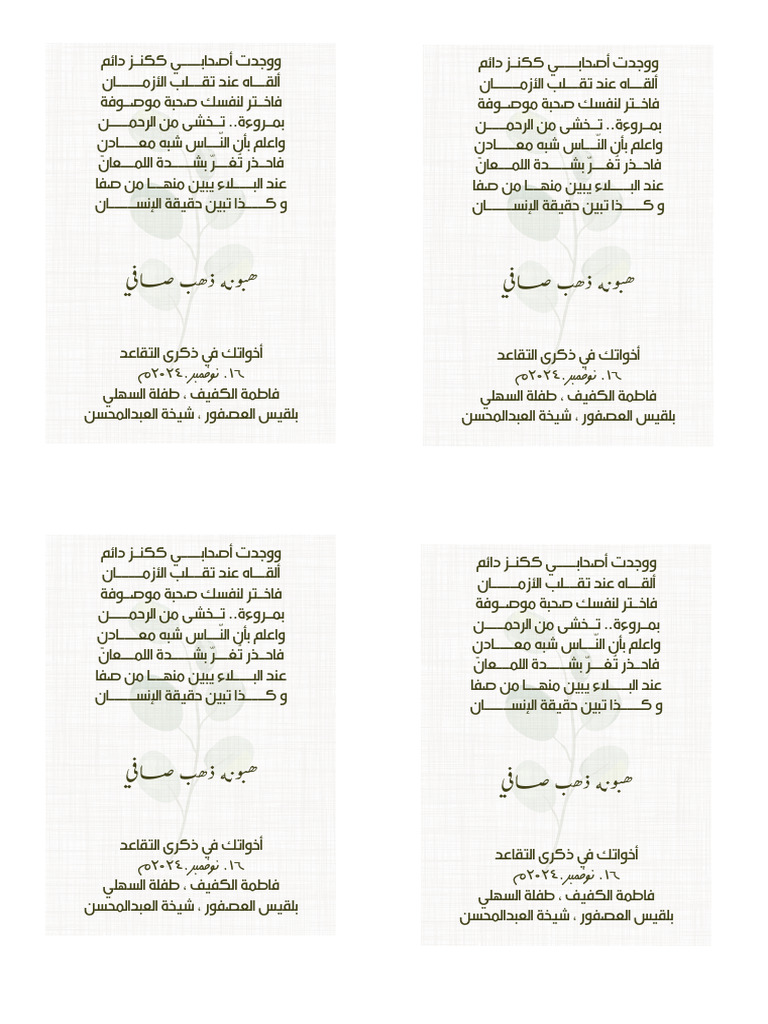 ووجدت أصحابي ككنز دائم
ألقاه عند تقلب الأزمان
فاختر لنفسك صحبة موصوفة
بمروءة.. تخشى من الرحمن
واعلم بأن النّاس شبه معادن
فاحذر تُغرّ بشدة اللمعان
عند البلاء يبين منها من صفا
و كذا تبين حقيقة الإنسان
هبونه ذهب صافي
أخواتك في ذكرى التقاعد
١٦. نوفمبر.٢٠٢٤م
فاطمة الكفيف ، طفلة السهلي
بلقيس العصفور ، شيخة العبدالمحسن
ووجدت أصحابي ككنز دائم
ألقاه عند تقلب الأزمان
فاختر لنفسك صحبة موصوفة
بمروءة.. تخشى من الرحمن
واعلم بأن النّاس شبه معادن
فاحذر تُغرّ بشدة اللمعان
عند البلاء يبين منها من صفا
و كذا تبين حقيقة الإنسان
هبونه ذهب صافي
أخواتك في ذكرى التقاعد
١٦. نوفمبر.٢٠٢٤م
فاطمة الكفيف ، طفلة السهلي
بلقيس العصفور ، شيخة العبدالمحسن
ووجدت أصحابي ككنز دائم
ألقاه عند تقلب الأزمان
فاختر لنفسك صحبة موصوفة
بمروءة.. تخشى من الرحمن
واعلم بأن النّاس شبه معادن
فاحذر تُغرّ بشدة اللمعان
عند البلاء يبين منها من صفا
و كذا تبين حقيقة الإنسان
هبونه ذهب صافي
أخواتك في ذكرى التقاعد
١٦. نوفمبر.٢٠٢٤م
فاطمة الكفيف ، طفلة السهلي
بلقيس العصفور ، شيخة العبدالمحسن
ووجدت أصحابي ككنز دائم
ألقاه عند تقلب الأزمان
فاختر لنفسك صحبة موصوفة
بمروءة.. تخشى من الرحمن
واعلم بأن النّاس شبه معادن
فاحذر تُغرّ بشدة اللمعان
عند البلاء يبين منها من صفا
و كذا تبين حقيقة الإنسان
هبونه ذهب صافي
أخواتك في ذكرى التقاعد
١٦. نوفمبر.٢٠٢٤م
فاطمة الكفيف ، طفلة السهلي
بلقيس العصفور ، شيخة العبدالمحسن